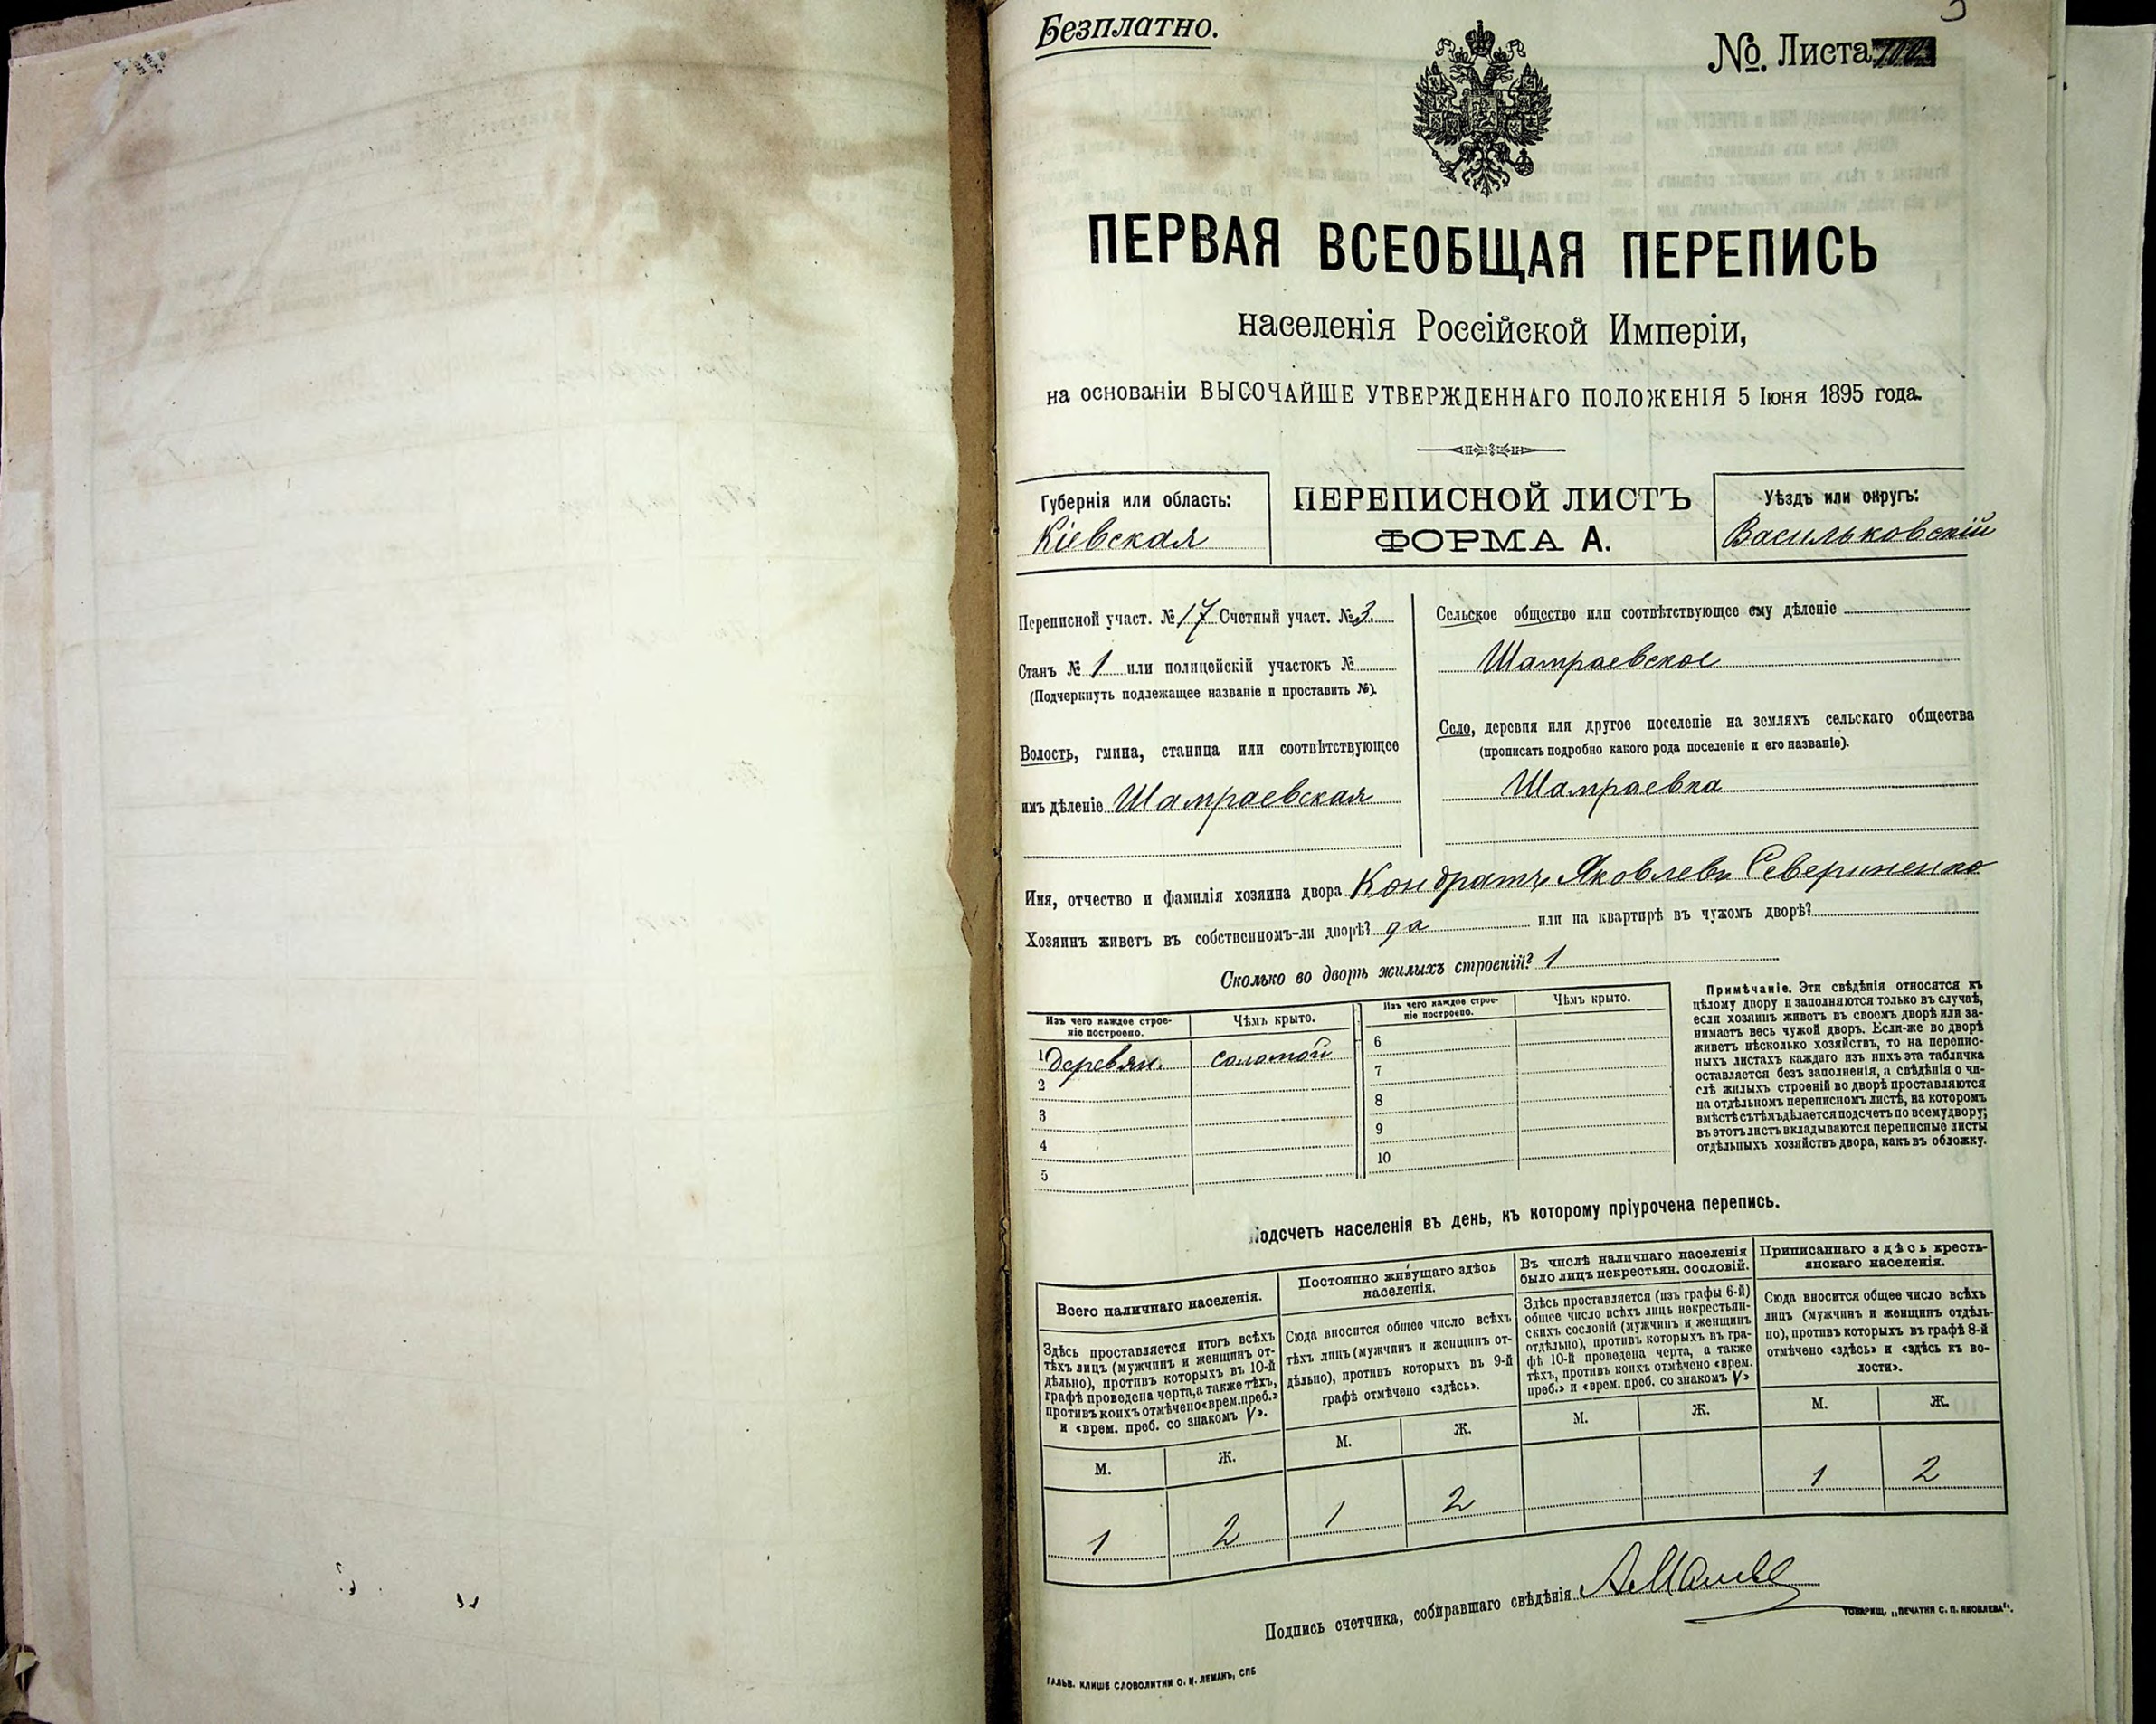 Безплатно.
№. Листа
ПЕРВАЯ ВСЕОБЩАЯ ПЕРЕПИСЬ
населенія Россійской Имперіи,
на основаніи ВЫСОЧАЙШЕ УТВЕРЖДЕННАГО ПОЛОЖЕНІЯ 5 Іюня 1895 года.
Губернія или область:
Кіевская
ПЕРЕПИСНОЙ ЛИСТЪ
ФОРМА А.
Уѣздъ или округъ:
Васильковскій
Переписной участ. № 17 Счетный участ. № 3.
Станъ № 1 или полицейскій участокъ №
(Подчеркнуть подлежащее названіе и проставить №).
Волость, гмина, станица или соотвѣтствующее
имъ дѣленіе Шамраевская
Сельское общество или соотвѣтствующее ему дѣленіе
Шамраевское
Село, деревня или другое поселеніе на земляхъ сельскаго общества
(прописать подробно какого рода поселеніе и его названіе).
Шамраевка
Имя, отчество и фамилія хозяина двора Кондратъ Яковлевъ Севериненко
Хозяинъ живетъ въ собственномъ-ли дворѣ? да или на квартирѣ въ чужомъ дворѣ?
Сколько во дворѣ жилыхъ строеній? 1
Изъ чего каждое строе-
ніе построено.
Чѣмъ крыто.
1 деревян. соломой
2
3
4
5
Изъ чего каждое строе-
ніе построено.
Чѣмъ крыто.
6
7
8
9
10
Примѣчаніе. Эти свѣдѣнія относятся къ
цѣлому двору и заполняются только въ случаѣ,
если хозяинъ живетъ въ своемъ дворѣ или за-
нимаетъ весь чужой дворъ. Если-же во дворѣ
живетъ нѣсколько хозяйствъ, то на перепис-
ныхъ листахъ каждаго изъ нихъ эта табличка
оставляется безъ заполненія, а свѣдѣнія о чи-
слѣ жилыхъ строеній во дворѣ проставляются
на отдѣльномъ переписномъ листѣ, на которомъ
вмѣстѣ съ тѣмъ дѣлается подсчетъ по всему двору;
въ этотъ листъ вкладываются переписные листы
отдѣльныхъ хозяйствъ двора, какъ въ обложку.
Подсчетъ населенія въ день, къ которому пріурочена перепись.
Всего наличнаго населенія.
Здѣсь проставляется итогъ всѣхъ
тѣхъ лицъ (мужчинъ и женщинъ от-
дѣльно), противъ которыхъ въ 10-й
графѣ проведена черта, а также тѣхъ,
противъ коихъ отмѣчено «врем. преб.»
и «врем. преб. со знакомъ V».
М. Ж.
1 2
Постоянно живущаго здѣсь
населенія.
Сюда вносится общее число всѣхъ
тѣхъ лицъ (мужчинъ и женщинъ от-
дѣльно), противъ которыхъ въ 9-й
графѣ отмѣчено «здѣсь».
М. Ж.
1 2
Въ числѣ наличнаго населенія
было лицъ некрестьян. сословій.
Здѣсь проставляется (изъ графы 6-й)
общее число всѣхъ лицъ некрестьян-
скихъ сословій (мужчинъ и женщинъ
отдѣльно), противъ которыхъ въ гра-
фѣ 10-й проведена черта, а также
тѣхъ, противъ коихъ отмѣчено «врем.
преб.» и «врем. преб. со знакомъ V»
М. Ж.
Приписаннаго здѣсь кресть-
янскаго населенія.
Сюда вносится общее число всѣхъ
лицъ (мужчинъ и женщинъ отдѣль-
но), противъ которыхъ въ графѣ 8-й
отмѣчено «здѣсь» и «здѣсь къ во-
лости».
М. Ж.
1 2
Подпись счетчика, собиравшаго свѣдѣнія
ТОВАРИЩ. „ПЕЧАТНЯ С. П. ЯКОВЛЕВА“.
ГАЛЬВ. КЛИШЕ СЛОВОЛИТНИ О. И. ЛЕМАНЪ, СПБ